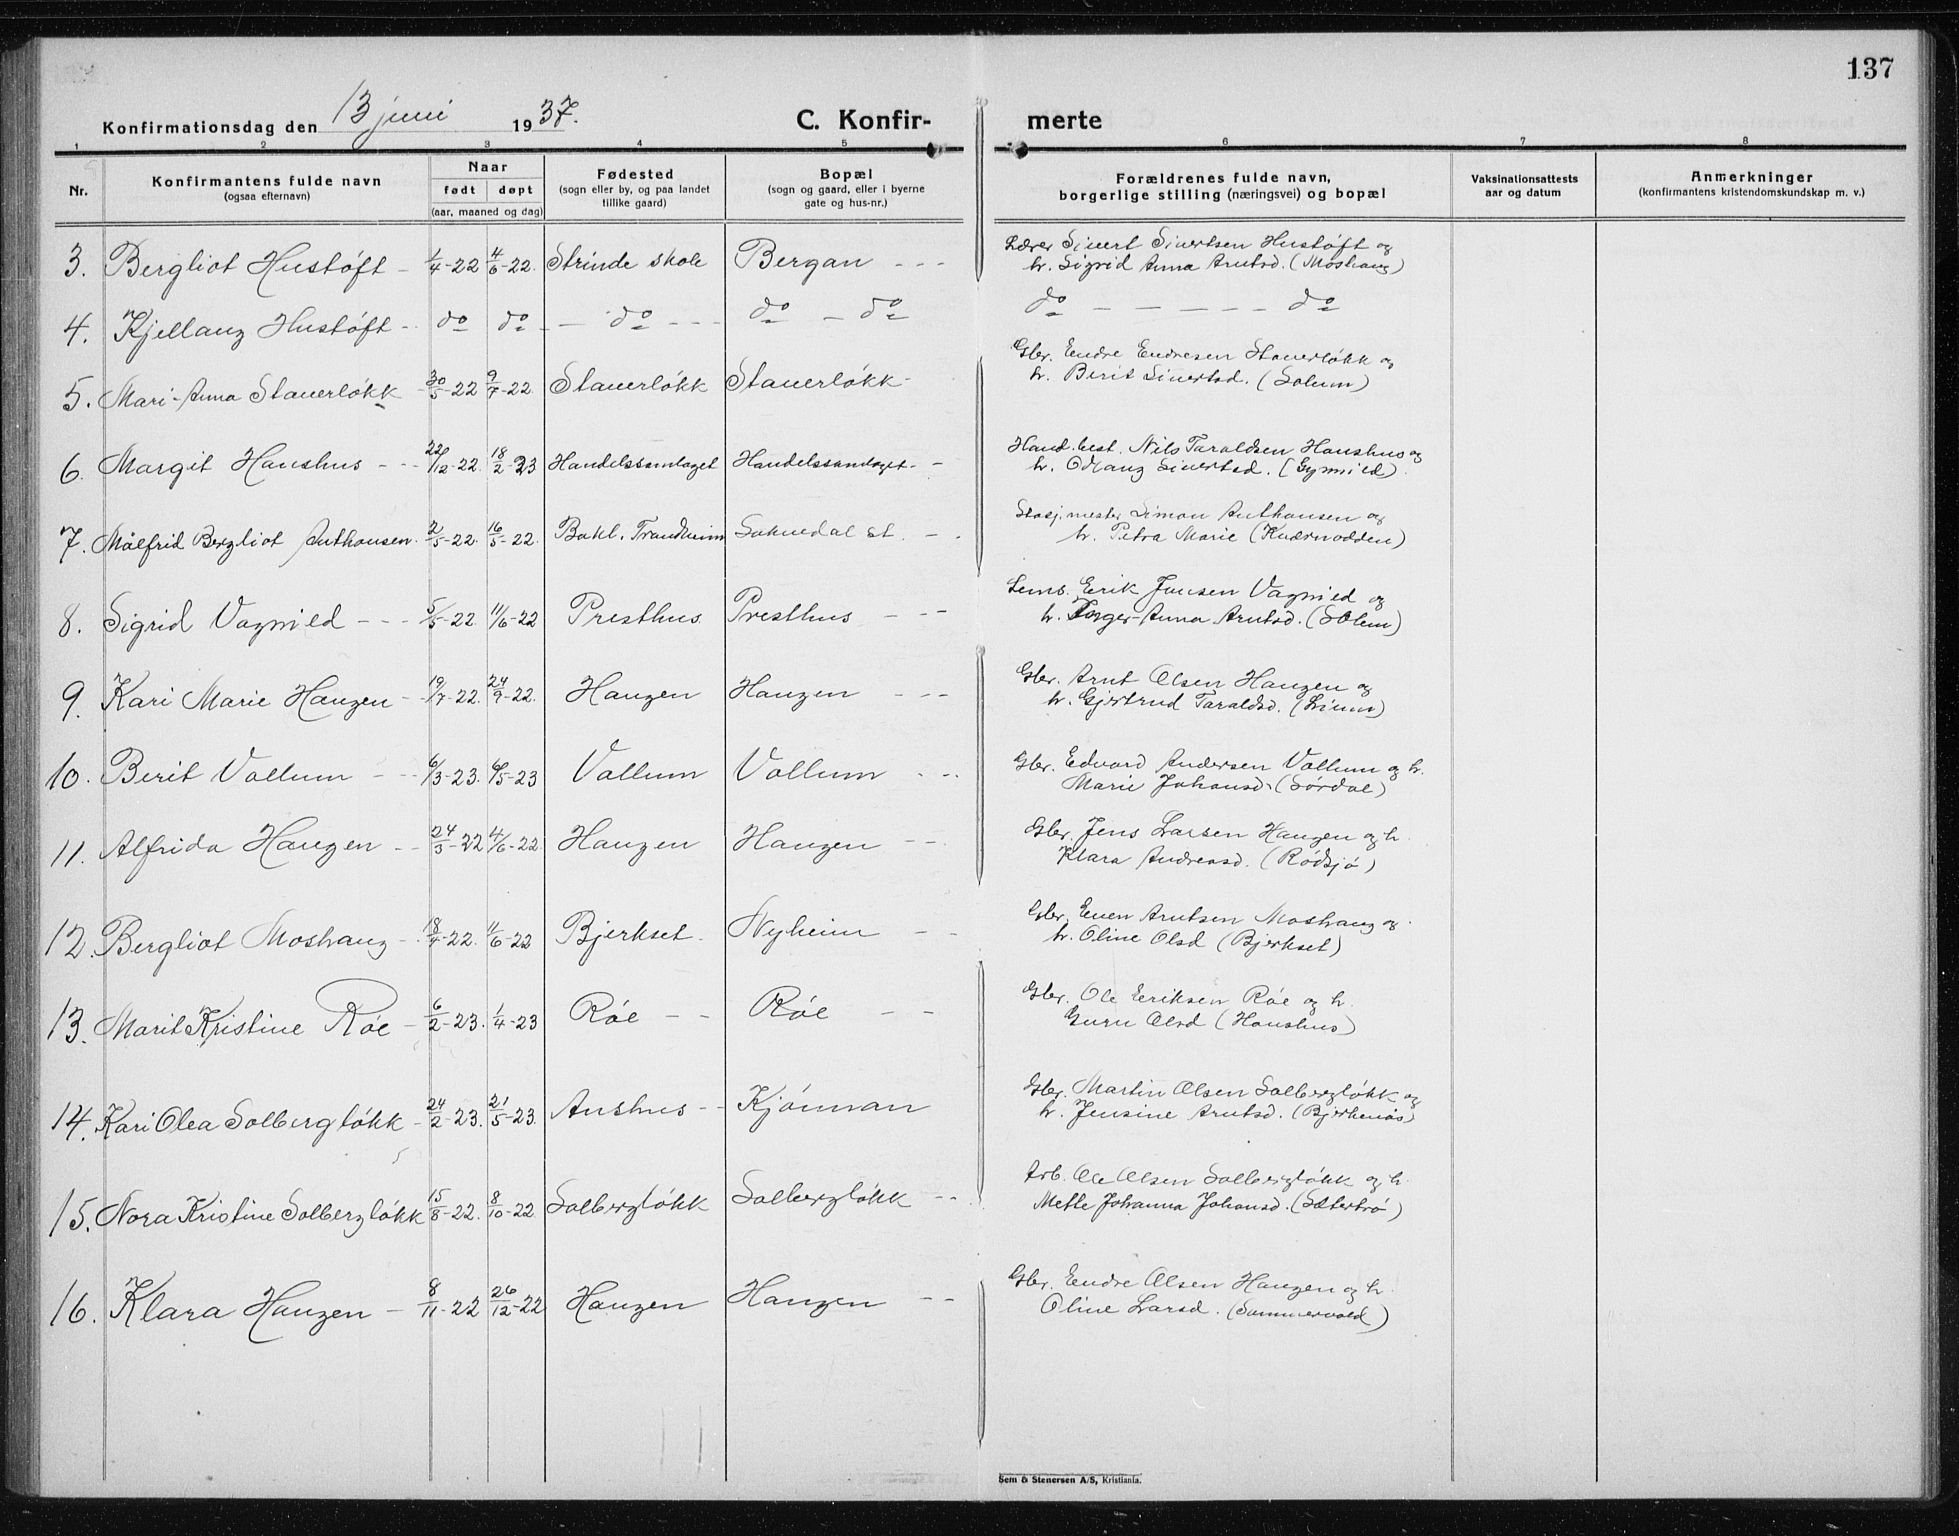 137
Konfirmationsdag den 13 juni 1937.
C. Konfir- merte
1 2 3 4 5 6 7 8
Nr. Konfirmantens fulde navn (ogsaa efternavn) Naar født døpt (aar, maaned og dag) Fødested (sogn eller by, og paa landet tillike gaard) Bopæl (sogn og gaard, eller i byerne gate og hus-nr.) Forældrenes fulde navn, borgerlige stilling (næringsvei) og bopæl Vaksinationsattests aar og datum Anmerkninger (konfirmantens kristendomskundskap m. v.)
3. Bergliot Hustøft - 1/4-22 4/6-22. Strinde skole Bergan - - - Lærer Sivert Sivertsen Hustøft og
h. Sigrid Anna Arntsd. (Moshaug)
4. Kjellaug Hustøft - do do - - do - - - do - do do - - - - - do
5. Mari-Anna Staverløkk - 30/5-22 9/7-22. Staverløkk Staverløkk - Gbr. Endre Endresen Staverløkk og
h. Berit Sivertsd. (Solum)
6. Margit Haushus - - - 22/12-22. 18/2-23 Handelssamlaget Handelssamlaget - - Hand.best. Nils Taraldsen Haushus og
h. Odlaug Sivertsd. (Gynnild)
7. Målfrid Bergliot Anthonsen. 2/5-22. 16/5-22. Bakl. Trondheim Soknedal st. - . Stasj.mester Simon Anthonsen og
h. Petra Marie (Kvernodden)
8. Sigrid Vagnild - - - 5/5-22. 11/6-22 Presthus. Presthus - - - Erik Jonsen Vagnild og
h. Inger-Anna Arntsd. (Solem)
9. Kari Marie Haugen - - 19/7-22. 24/9-22. Haugen Haugen - - - Gbr. Arnt Olsen Haugen og
h. Gjertrud Taraldsd. (Lium)
10. Berit Vollum - - - 6/3-23. 6/5-23 Vollum Vollum - - . Gbr. Edvard Andersen Vollum og h.
Marie Johansd. (Sørdal)
11. Alfrida Haugen - - 24/3-22 4/6-22. Haugen Haugen - - . Gbr. Jens Larsen Haugen og h.
Klara Andreasd. (Rødsjø)
12. Bergliot Moshaug - . 18/4-22. 11/6-22 Bjerkset. Nyheim - - Gbr. Even Arntsen Moshaug og
h. Oline Olsd (Bjerkset)
13. Marit Kristine Røe - 6/2-23. 1/4-23 Røe - - Røe - - Gbr. Ole Eriksen Røe og h.
Guru Olsd (Haushus)
14. Kari Olea Solbergløkk - 24/2-23. 21/5-23. Aushus - - Kjønman Gbr. Martin Olsen Solbergløkk og
h. Jensine Arntsd.
15. Nora Kristine Solbergløkk 15/8-22. 8/10-22 Solbergløkk Solbergløkk - - Arb. Ole Olsen Solbergløkk og h.
Mette Johanna Johansd. (Sætertrø)
16. Klara Haugen - 8/11-22 26/12-22 Haugen Haugen - - Gbr. Endre Olsen Haugen og h.
Oline Larsd. (Sommervold)
Sem & Stenersen A/S, Kristiania.